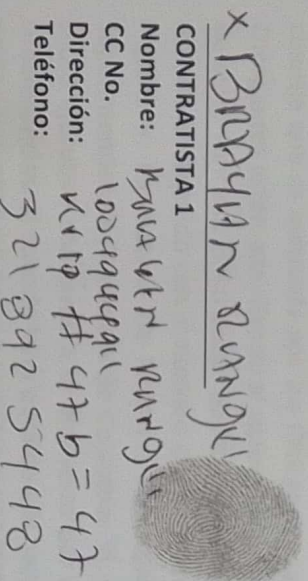 x BRAYAN RUNGEL
CONTRATISTA 1
Nombre: BRAYAN RUNGEL
CC No.
Dirección: # 47 b = 47
Teléfono: 321 892 5448